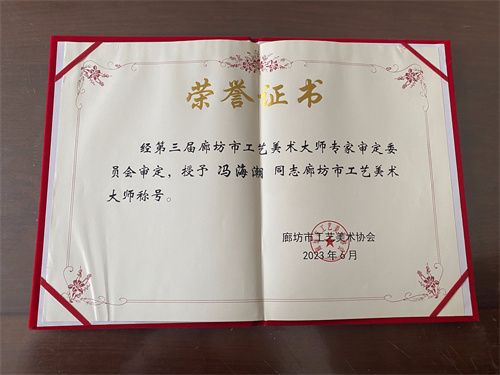 荣誉证书
经第三届廊坊市工艺美术大师专家审定委
员会审定，授予 冯海潮 同志廊坊市工艺美术
大师称号。
廊坊市工艺美术协会
2023年6月